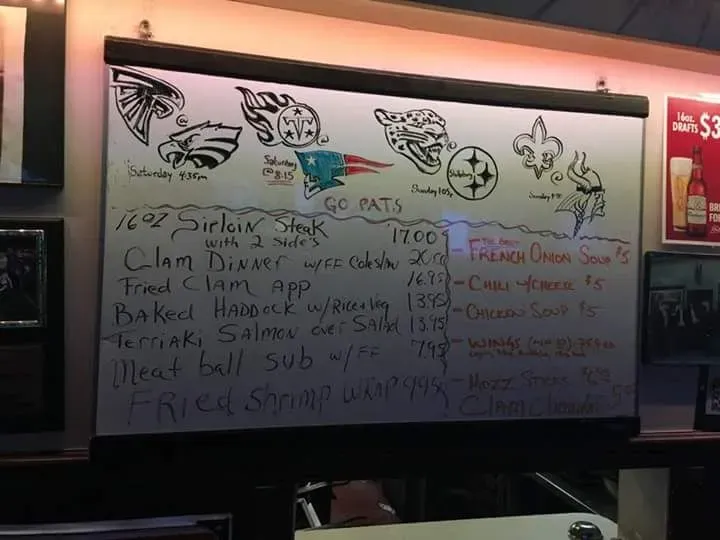 Saturday 4:35pm
Saturday
@ 8:15
Sunday 1:05
Steelers
Sunday
GO PATS
16oz Sirloin Steak 17.00
with 2 side's
Clam Dinner w/FF Coleslaw
Fried Clam App 16.95
Baked HADDOCK w/Rice + Veg 13.95
Terriaki Salmon over Salad 13.95
Meat ball sub w/FF 7.95
FRied Shrimp WRAP 9.95
THE BEST
- FRENCH ONION SOUP $5
- CHILI w/CHEESE $5
- CHICKEN SOUP $5
- WINGS
- MOZZ STICKS $6.95
CLAM Chowder
16oz.
DRAFTS $3